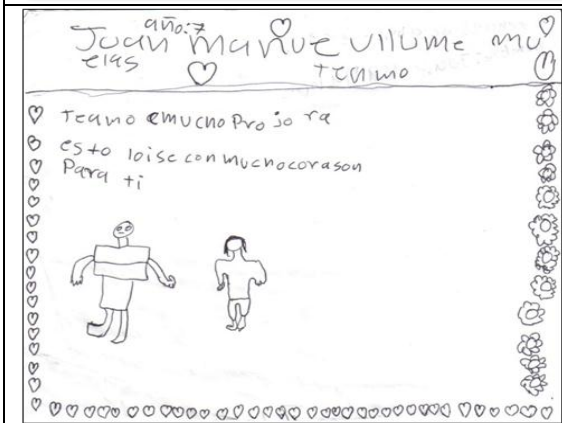 año:7
Juan manue ullume mu
elas
teamo
Teamo emucho Projora
esto loise con muchocorason
Para ti